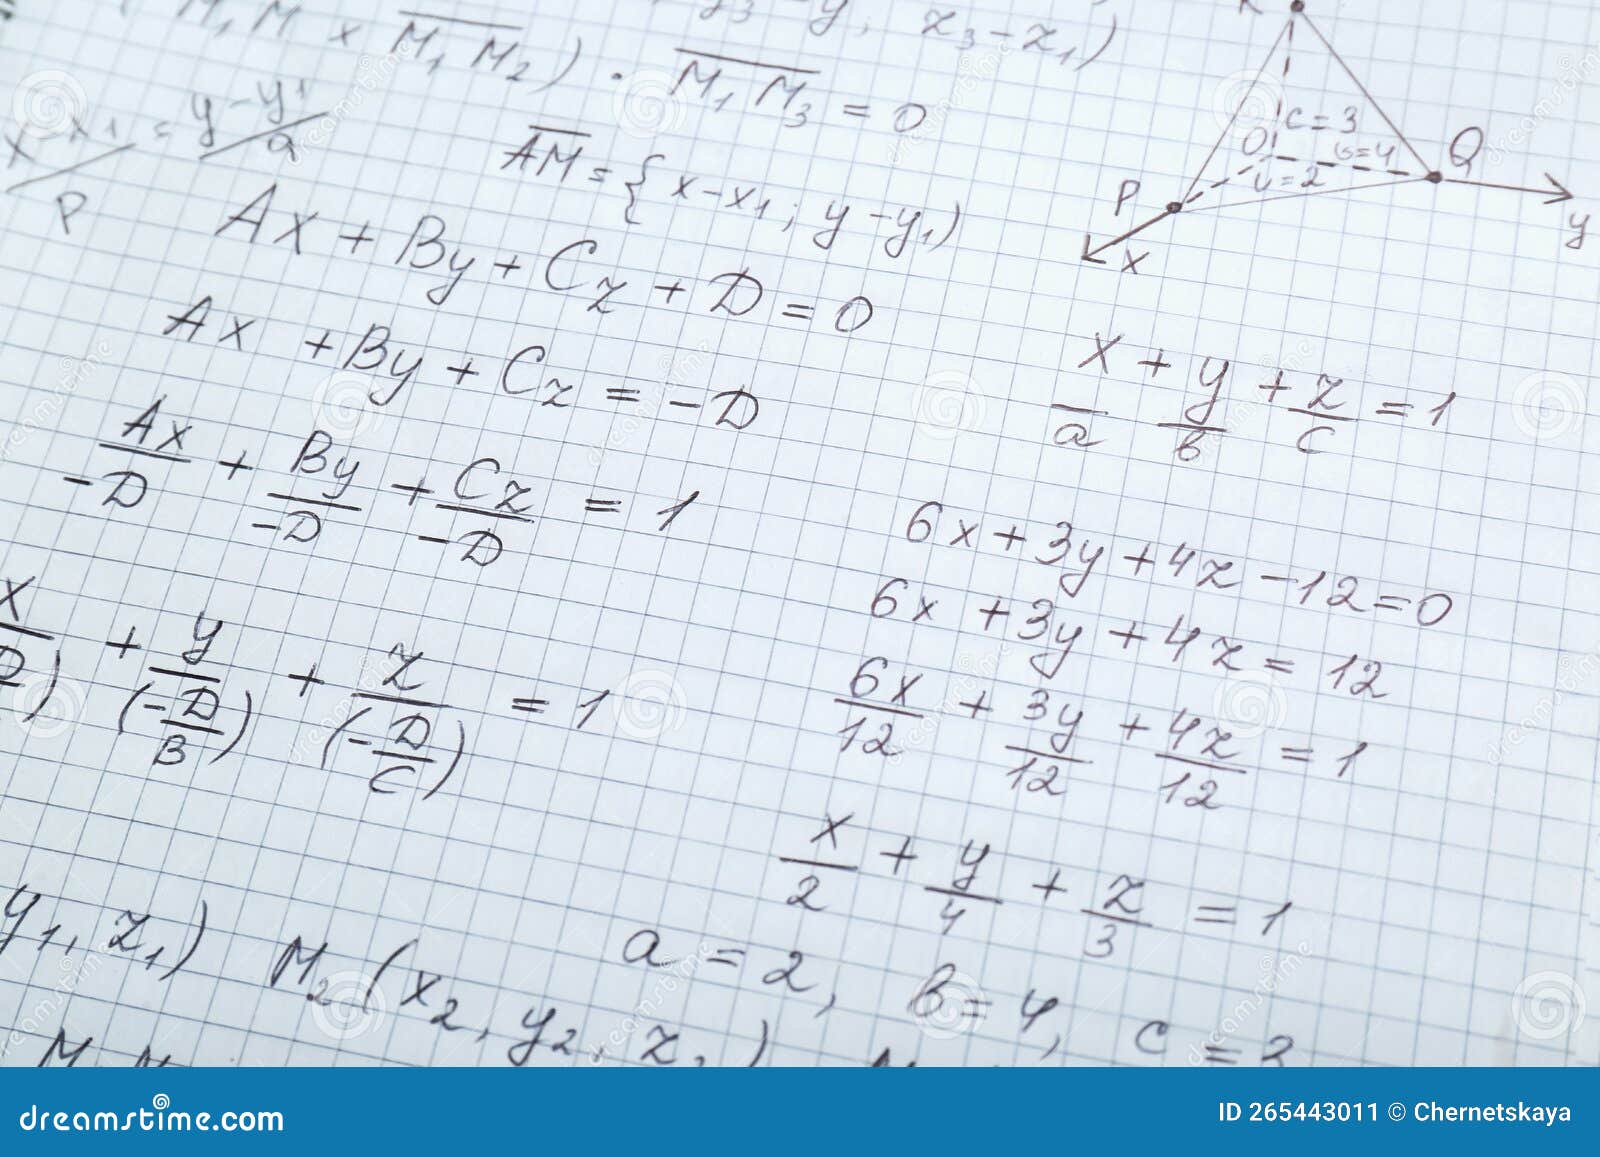 M₁M × M₁M₂) · M₁M₃ = 0
z₃ - z₁)
x - x₁ / P = y - y₁ / a
AM = { x - x₁; y - y₁)
Ax + By + Cz + D = 0
Ax + By + Cz = -D
Ax/-D + By/-D + Cz/-D = 1
x/ D) + y/(-D/B) + z/(-D/C) = 1
y₁, z₁) M₂ (x₂, y₂, z
O c=3
в=4 Q
P =2
x y
x/a + y/в + z/c = 1
6x + 3y + 4z - 12 = 0
6x + 3y + 4z = 12
6x/12 + 3y/12 + 4z/12 = 1
x/2 + y/4 + z/3 = 1
a = 2, в = 4, c = 3
dreamstime.com
ID 265443011 © Chernetskaya